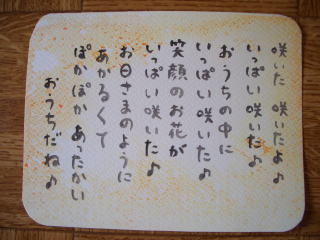 咲いた 咲いたよ♪
いっぱい咲いた♪
おうちの中に
いっぱい咲いた♪
笑顔のお花が
いっぱい咲いた♪
お日さまのように
あかるくて
ぽかぽかあったかい
おうちだね♪